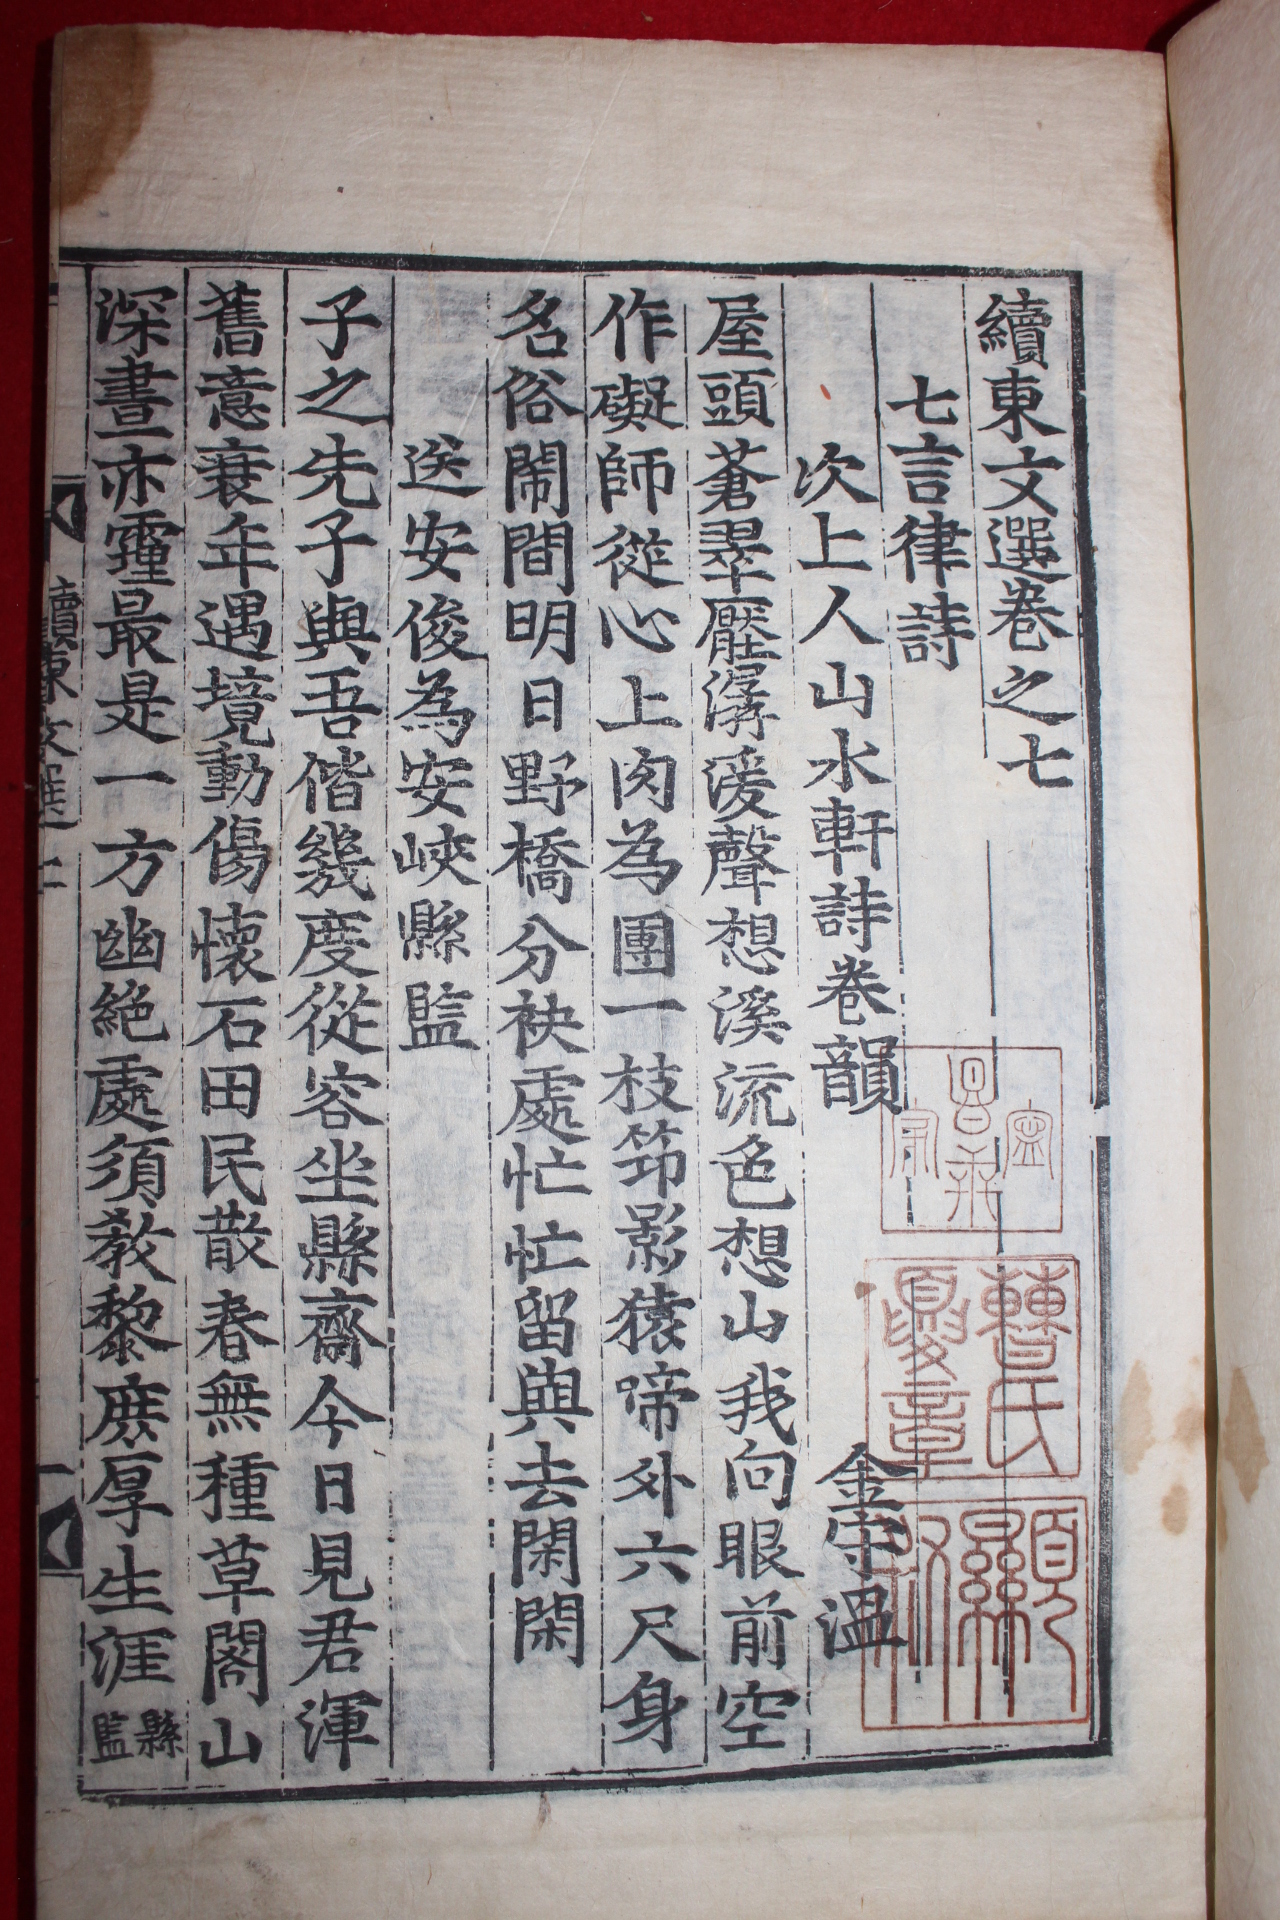 續東文選卷之七
七言律詩
次上人山水軒詩卷韻 金守溫
屋頭蒼翠壓潺湲聲想溪流色想山我向眼前空
作礙師從心上肉為團一枝筇影猿啼外六尺身
名俗鬧間明日野橋分袂處忙忙留與去閑閑
送安俊為安峽縣監
子之先子與吾偕幾度從容坐縣齋今日見君渾
舊意衰年遇境動傷懷石田民散春無種草閣山
深晝亦霾最是一方幽絶處須教黎庶厚生涯縣監
續東文選
曹氏
章